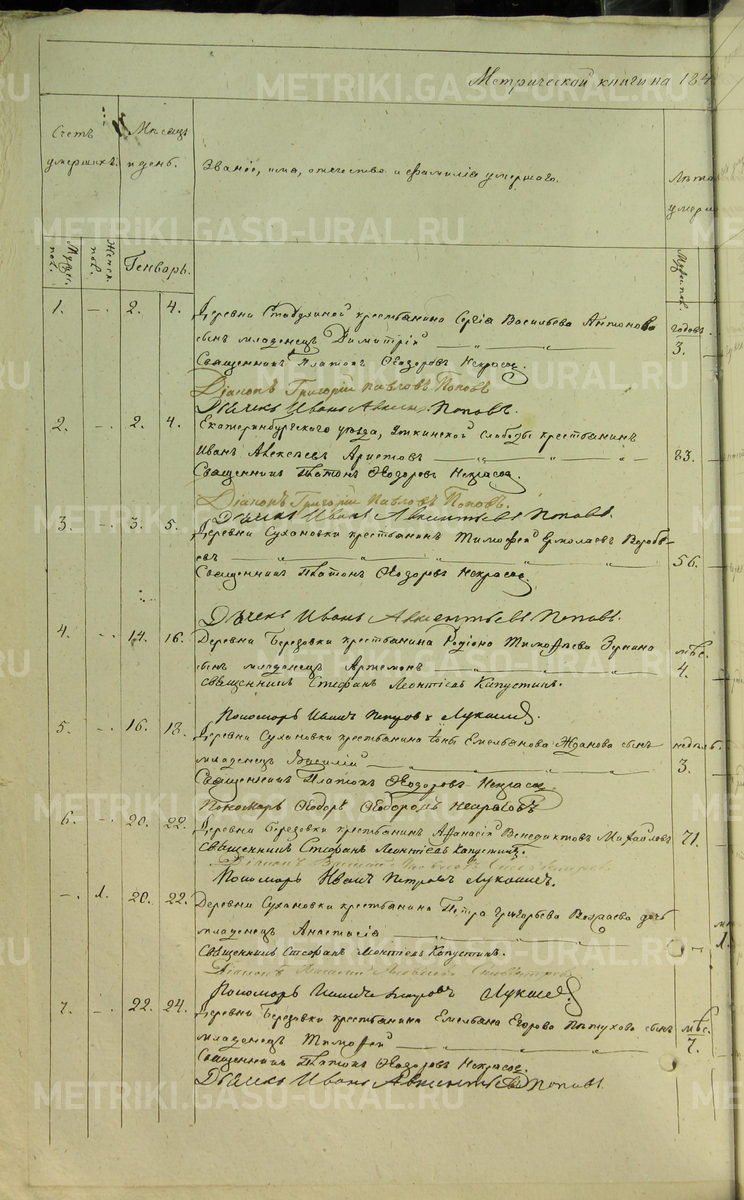 Метрической книги на 184
Счетъ умершихъ.
Мѣсяцъ и день.
Званіе, имя, отечество и фамилія умершаго.
Лѣта умерш
Мужск. пол.
Женск. пол.
Генварь.
Мужеск.
1. — 2. 4. Деревни крестьянина Сергія Васильева Антонова
сынъ младенецъ Димитрій
годовъ 3.
Священникъ Платонъ Ѳеодоровъ Некрасовъ.
Діаконъ Григорій Павловъ Поповъ
Дьячекъ Иванъ Поповъ.
2. — 2. 4. Екатеринбургскаго уѣзда, Уткинской Слободы крестьянинъ
Иванъ Алексѣевъ Аристовъ
83.
Священникъ Платонъ Ѳеодоровъ Некрасовъ.
Діаконъ Григорій Павловъ Поповъ.
Дьячекъ Иванъ Авкентьевъ Поповъ.
3. — 3. 5. Деревни Сухановки крестьянинъ Тимофей Ермолаевъ Воробь-
евъ
56.
Священникъ Платонъ Ѳеодоровъ Некрасовъ.
Дьячекъ Иванъ Авкентьевъ Поповъ.
4. — 14. 16. Деревни Березовки крестьянина Родіона Тимофѣева Зернина
сынъ младенецъ Артемонъ
мѣс. 4.
Священникъ Стефанъ Леонтіевъ Капустинъ.
Пономарь Иванъ Петровъ Лукашевъ.
5. — 16. 18. Деревни Сухановки крестьянина Іоны Емельянова Жданова сынъ
младенецъ Василій
недѣль. 3.
Священникъ Платонъ Ѳеодоровъ Некрасовъ
Пономарь Ѳеодоръ Ѳеодоровъ Некрасовъ
6. — 20. 22. Деревни Березовки крестьянинъ Афанасій Венедиктовъ Михайловъ
71.
Священникъ Стефанъ Леонтіевъ Капустинъ.
Діаконъ
Пономарь Иванъ Петровъ Лукашевъ.
— 1. 20. 22. Деревни Сухановки крестьянина Петра Григорьева дочь
младенецъ Анастасія
Священникъ Стефанъ Леонтіевъ Капустинъ.
Діаконъ
Пономарь Иванъ Петровъ Лукашевъ.
7. — 22. 24. Деревни Березовки крестьянина Емельяна Егорова Пѣтухова сынъ
младенецъ Тимофей
мѣс. 7.
Священникъ Платонъ Ѳеодоровъ Некрасовъ
Дьячекъ Иванъ Авкентьевъ Поповъ.
METRIKI.GASO-URAL.RU